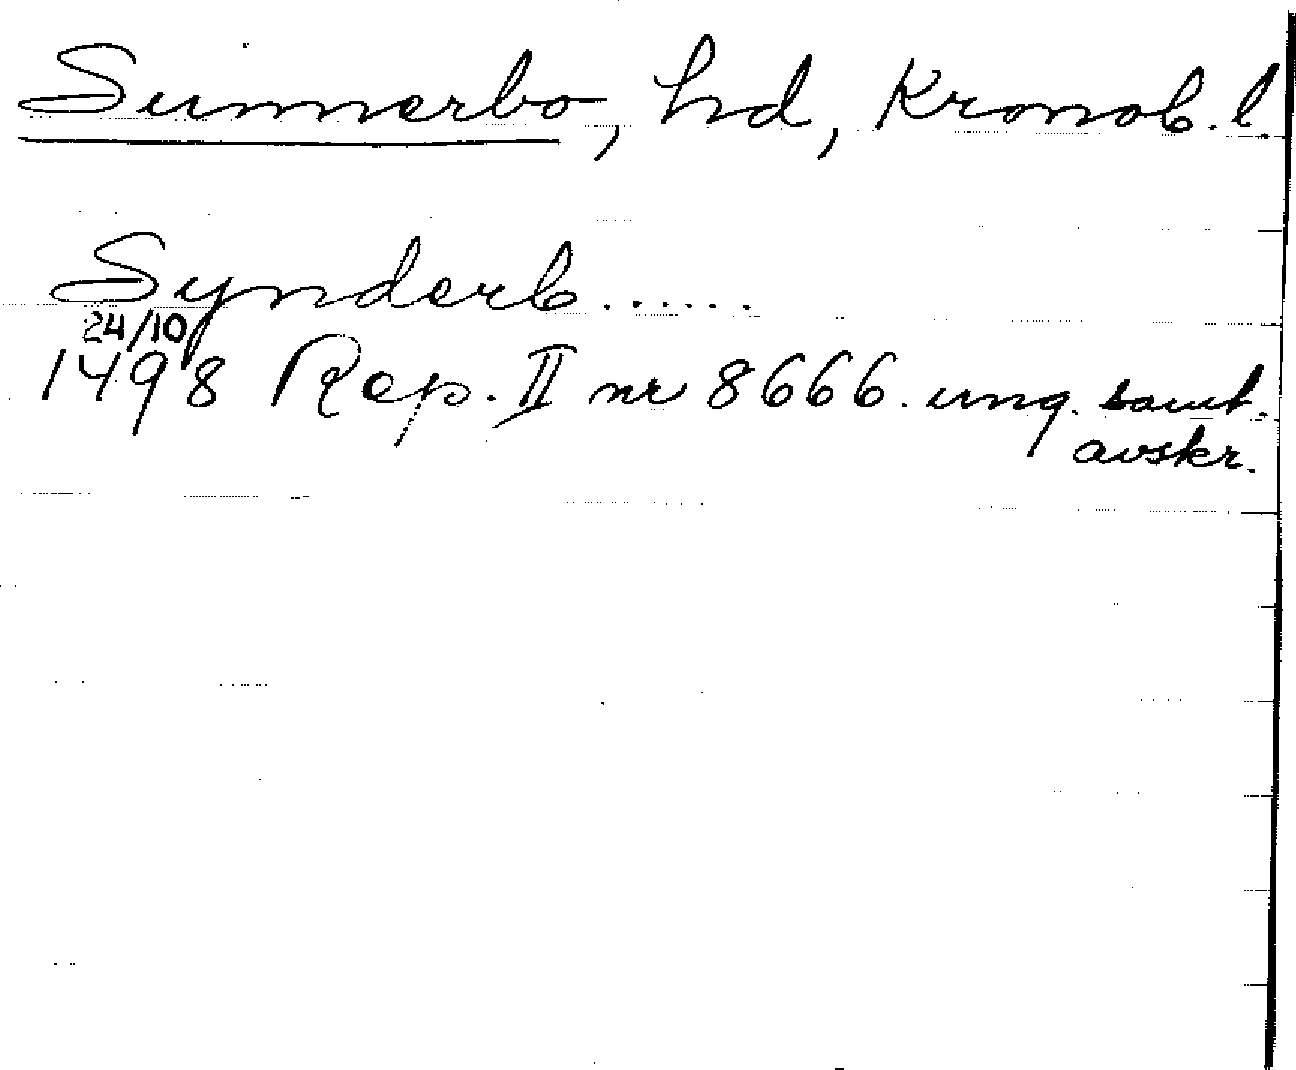 Sunnerbo, hd, Kronob. l.
Synderb......
24/10
1498 Rep. II nr 8666. ung. samt.
avskr.